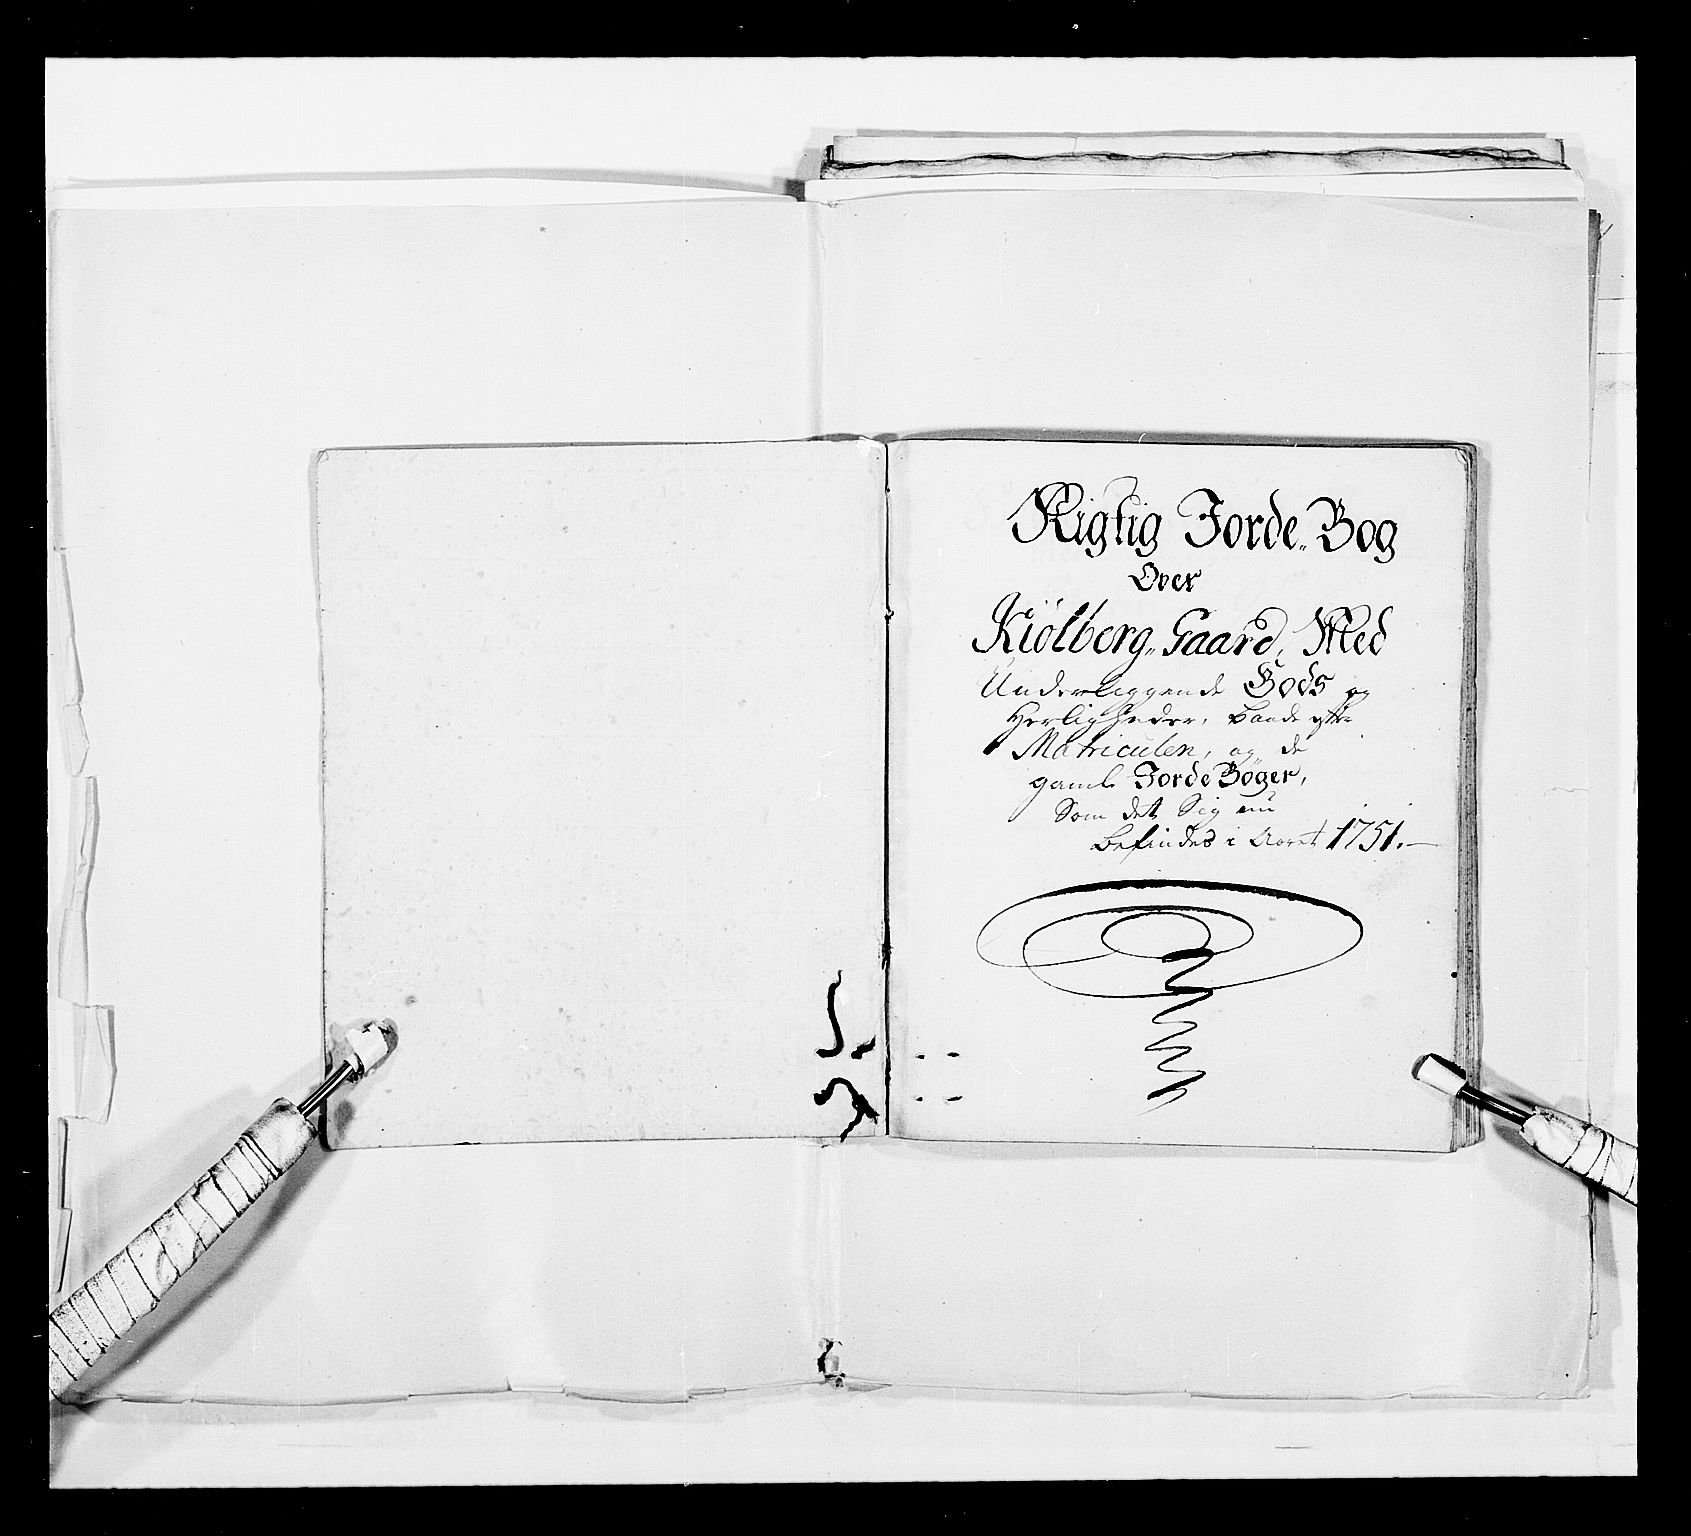 Rigtig Jorde-Bog
Over
Kiölberg-Gaard, Med
Underliggende Gods og
Herligheder, baade efter
Matriculen, og de
gamle Jorde Böger,
Som det Sig nu
befindes i Aaret 1751.